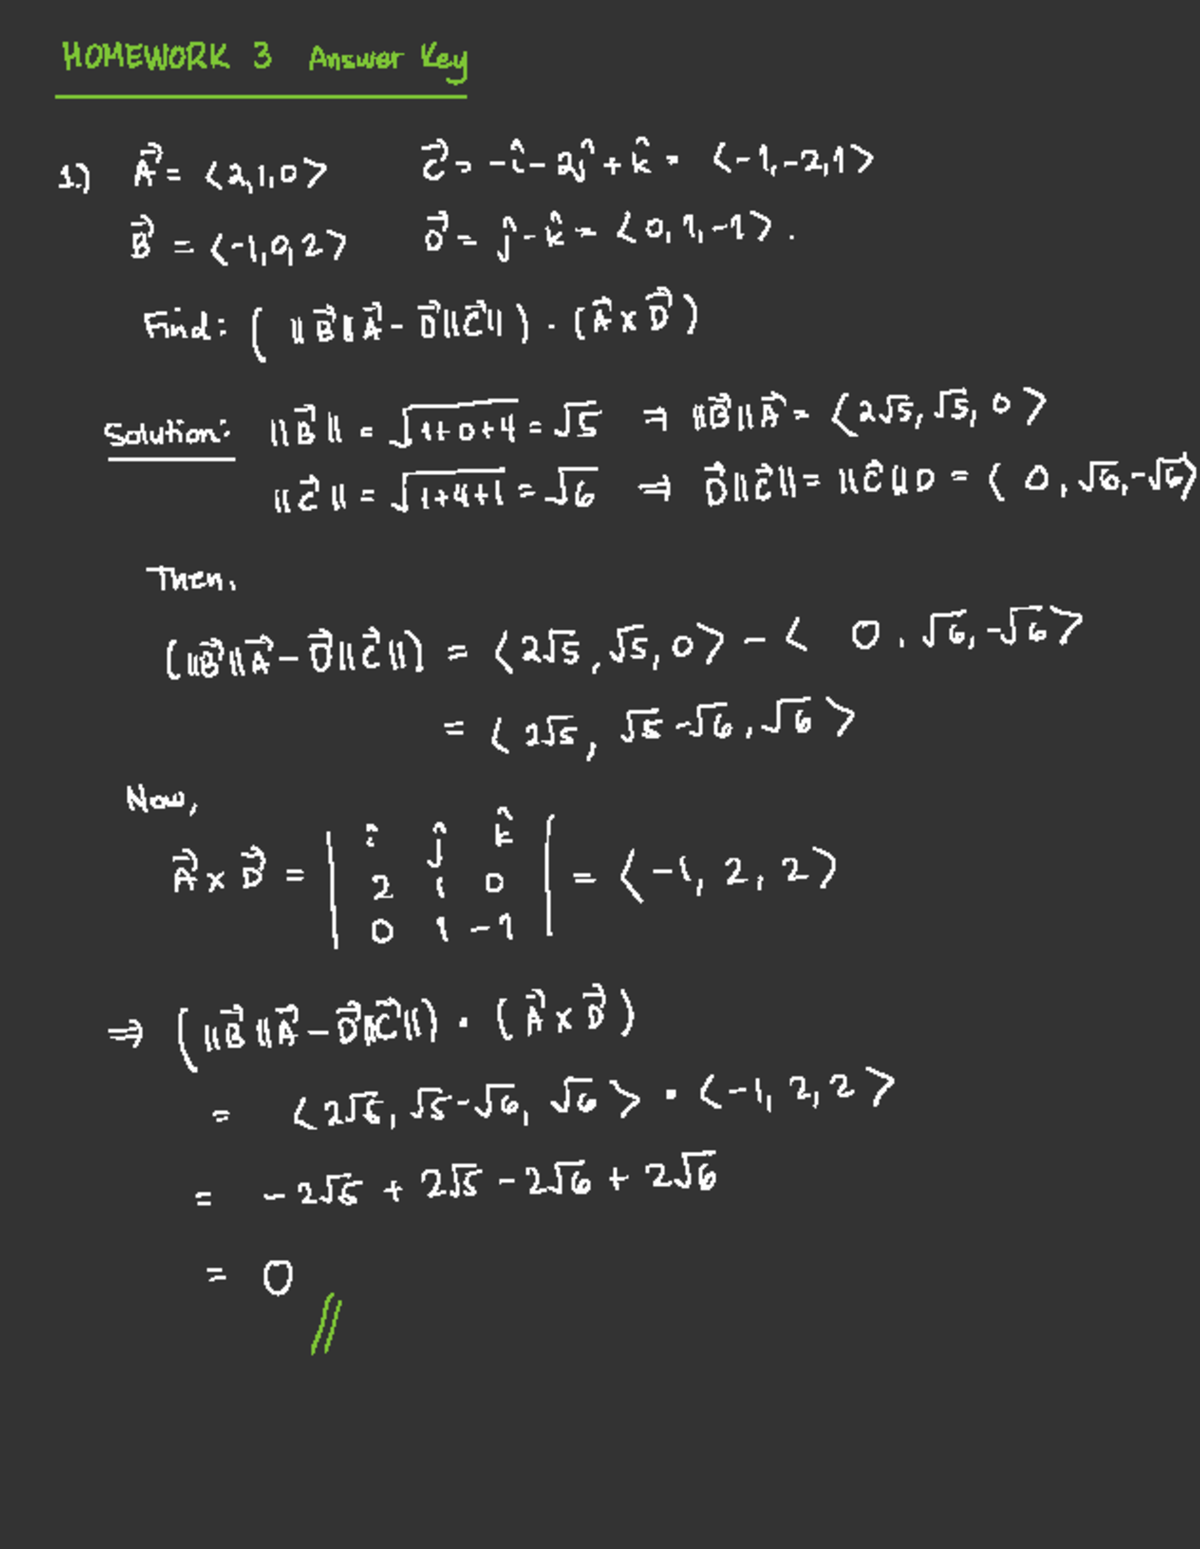 HOMEWORK 3 Answer Key
1.) A⃗ = ⟨2,1,0⟩ C⃗ = -î - 2ĵ + k̂ = ⟨-1,-2,1⟩
B⃗ = ⟨-1,0,2⟩ D⃗ = ĵ - k̂ = ⟨0,1,-1⟩.
Find: ( ||B⃗||A⃗ - D⃗||C⃗|| ) · (A⃗ × D⃗)
Solution: ||B⃗|| = √(1+0+4) = √5 ⇒ ||B⃗||A⃗ = ⟨2√5, √5, 0⟩
||C⃗|| = √(1+4+1) = √6 ⇒ D⃗||C⃗|| = ||C⃗||D = ⟨0, √6, -√6⟩
Then,
(||B⃗||A⃗ - D⃗||C⃗||) = ⟨2√5, √5, 0⟩ - ⟨0, √6, -√6⟩
= ⟨2√5, √5-√6, √6⟩
Now,
A⃗ × D⃗ = | î ĵ k̂
2 1 0
0 1 -1 | = ⟨-1, 2, 2⟩
⇒ (||B⃗||A⃗ - D⃗||C⃗||) · (A⃗ × D⃗)
= ⟨2√5, √5-√6, √6⟩ · ⟨-1, 2, 2⟩
= -2√5 + 2√5 - 2√6 + 2√6
= 0 //